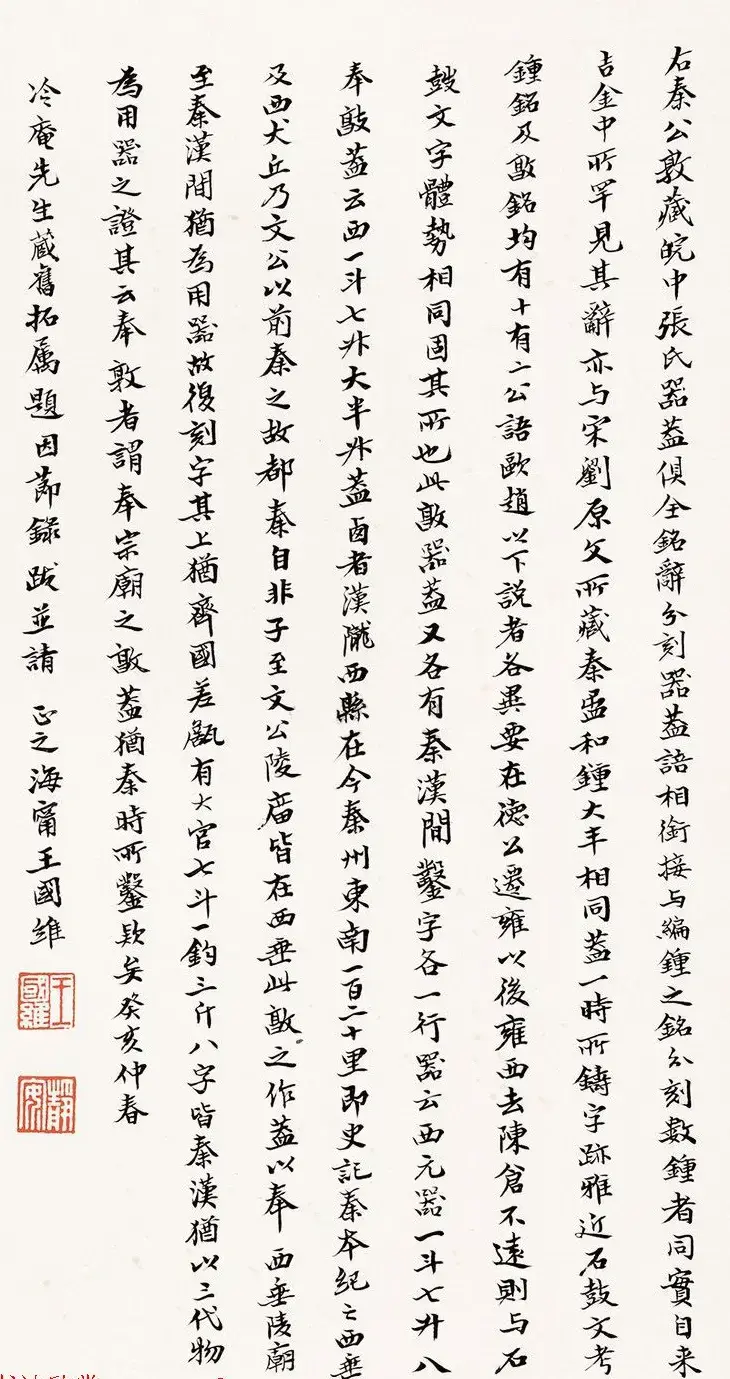 右秦公敦藏皖中張氏器葢俱全銘辭分刻器葢語相銜接与編鍾之銘分刻數鍾者同實自来
吉金中所罕見其辭亦与宋劉原父所藏秦盄和鍾大半相同葢一時所鑄字跡雅近石鼓文考
鍾銘及敦銘均有十有二公語歐趙以下説者各異要在徳公遷雍以後雍西去陳倉不遠則与石
鼓文字體勢相同固其所也此敦器葢又各有秦漢間鑿字各一行器云西元器一斗七升八
奉敦葢云西一斗七升大半升葢西者漢隴西縣在今秦州東南一百二十里即史記秦本紀之西垂
及西犬丘乃文公以前秦之故都秦自非子至文公陵廟皆在西垂此敦之作葢以奉西垂陵廟
至秦漢間猶為用器故復刻字其上猶齊國差𦉜有大官七斗一鈞三斤八字皆秦漢猶以三代物
為用器之證其云奉敦者謂奉宗廟之敦葢猶秦時所鑿款矣癸亥仲春
冷庵先生藏舊拓属題因節錄跋並請 正之海甯王國維
王國維
靜安